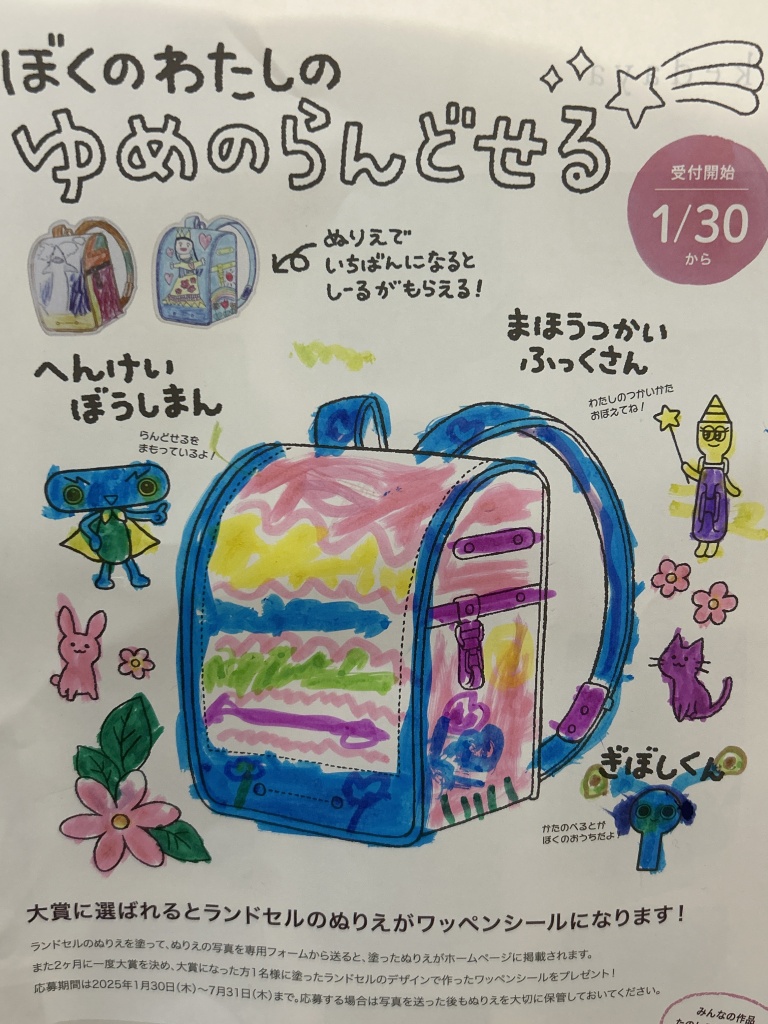 ぼくのわたしの
ゆめのらんどせる
受付開始
1/30
から
ぬりえで
いちばんになると
しーるがもらえる!
まほうつかい
ふっくさん
わたしのつかいかた
おぼえてね!
へんけい
ぼうしまん
らんどせるを
まもっているよ!
ぎぼしくん
かたのべるとが
ぼくのおうちだよ!
大賞に選ばれるとランドセルのぬりえがワッペンシールになります!
ランドセルのぬりえを塗って、ぬりえの写真を専用フォームから送ると、塗ったぬりえがホームページに掲載されます。
また2ヶ月に一度大賞を決め、大賞になった方1名様に塗ったランドセルのデザインで作ったワッペンシールをプレゼント!
応募期間は2025年1月30日(木)〜7月31日(木)まで。応募する場合は写真を送った後もぬりえを大切に保管しておいてください。
みんなの作品